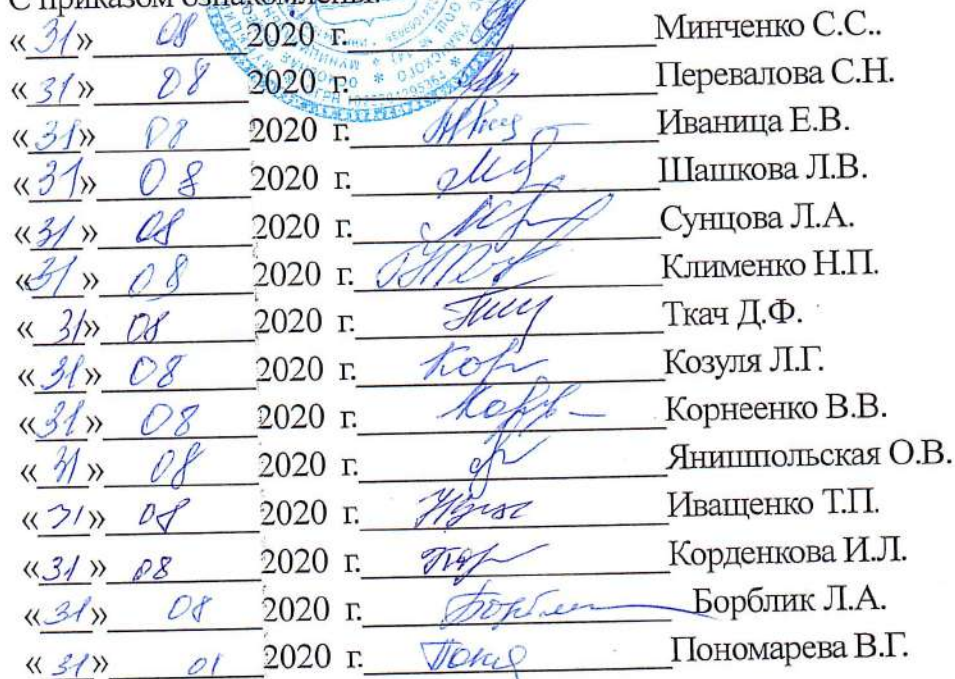 С приказом ознакомлены:
«31» 08 2020 г. Минченко С.С..
«31» 08 2020 г. Перевалова С.Н.
«31» 08 2020 г. Иваница Е.В.
«31» 08 2020 г. Шашкова Л.В.
«31» 08 2020 г. Сунцова Л.А.
«31» 08 2020 г. Клименко Н.П.
«31» 08 2020 г. Ткач Д.Ф.
«31» 08 2020 г. Козуля Л.Г.
«31» 08 2020 г. Корнеенко В.В.
«31» 08 2020 г. Янишпольская О.В.
«31» 08 2020 г. Иващенко Т.П.
«31» 08 2020 г. Корденкова И.Л.
«31» 08 2020 г. Борблик Л.А.
«31» 01 2020 г. Пономарева В.Г.